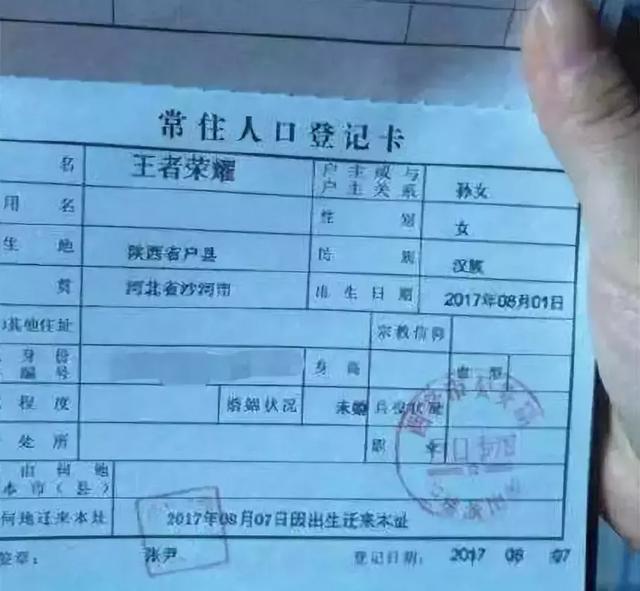 常住人口登记卡
名 王者荣耀 户主或与户主关系 孙女
用名 性别 女
生地 陕西省户县 民族 汉族
贯 河北省沙河市 出生日期 2017年08月01日
其他住址 宗教信仰
身份编号 身高 血型
程度 婚姻状况 未婚 兵役状况
处所 职业
由何地
本市（县）
何地迁来本址 2017年08月07日因出生迁来本址
签章： 张尹 登记日期： 2017 08 07